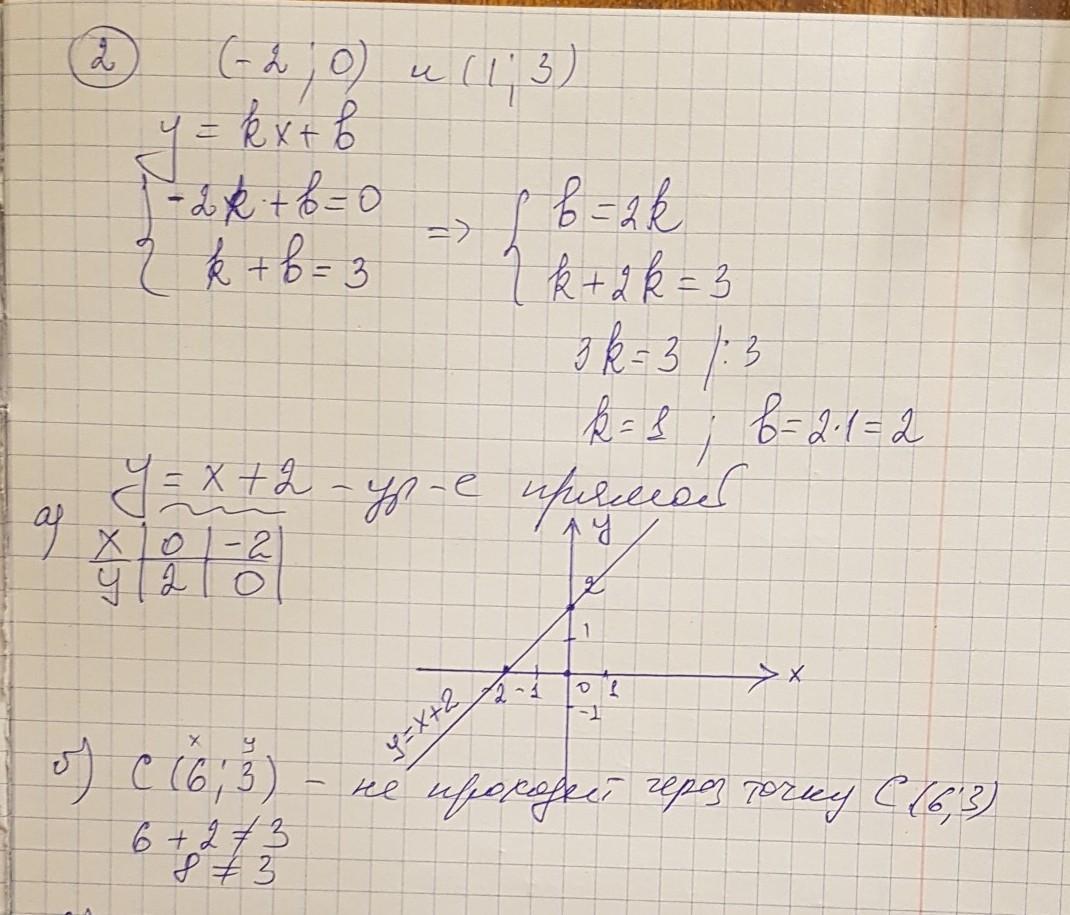 2 (-2; 0) и (1; 3)
y = kx + b
-2k + b = 0 => b = 2k
k + b = 3 k + 2k = 3
3k = 3 |: 3
k = 1 ; b = 2·1 = 2
y = x + 2 - ур-е прямой
а)
x | 0 | -2 |
y | 2 | 0 |
y
2
1
-2 -1 0 1 x
-1
y=x+2
x y
б) C (6; 3) - не проходит через точку C (6; 3)
6 + 2 ≠ 3
8 ≠ 3